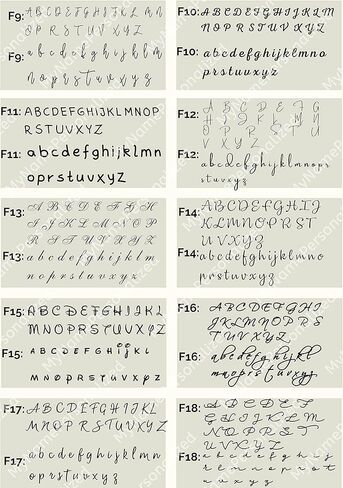 F9: A B C D E F G H I J K L M N
O P R S T U V X Y Z
F9: a b c d e f g h i j k l m
n o p r s t u v x y z
F10: A B C D E F G H I J K L M
N O P R S T U V X Y Z
F10: a b c d e f g h i j k l m n o
p r s t u v x y z
F11: A B C D E F G H I J K L M N O P
R S T U V X Y Z
F11: a b c d e f g h i j k l m n
o p r s t u v x y z
F12: A B C D E F G
H I J K L M N
O P R S T U
V X Y Z
F12: a b c d e f g h i j k l m n o p r s
t u v x y z
F13: A B C D E F G H
I J K L M N O P
R S T U V X Y Z
F13: a b c d e f g h i j k l m
n o p r s t u v x y z
F14: A B C D E F G H I J
K L M N O P R S T
U V X Y Z
F14: a b c d e f g h i j k l m n o
p r s t u v x y z
F15: A B C D E F G H I J K L
M N O P R S T U V X Y Z
F15: A B C D E F G H I J K L
M N O P R S T U V X Y Z
F16: A B C D E F G H
I J K L M N O P R S
T U V X Y Z
F16: a b c d e f g h i j k l
m n o p r s t u v x y z
F17: A B C D E F G H I J K L
M N O P R S T U V X Y Z
F17: a b c d e f g h i j k l m n
o p r s t u v x y z
F18: A B C D E F
G H I J K L M
N O P R S T
U V X Y Z
F18: a b c d e f g h i j
k l m n o p r s t
u v x y z